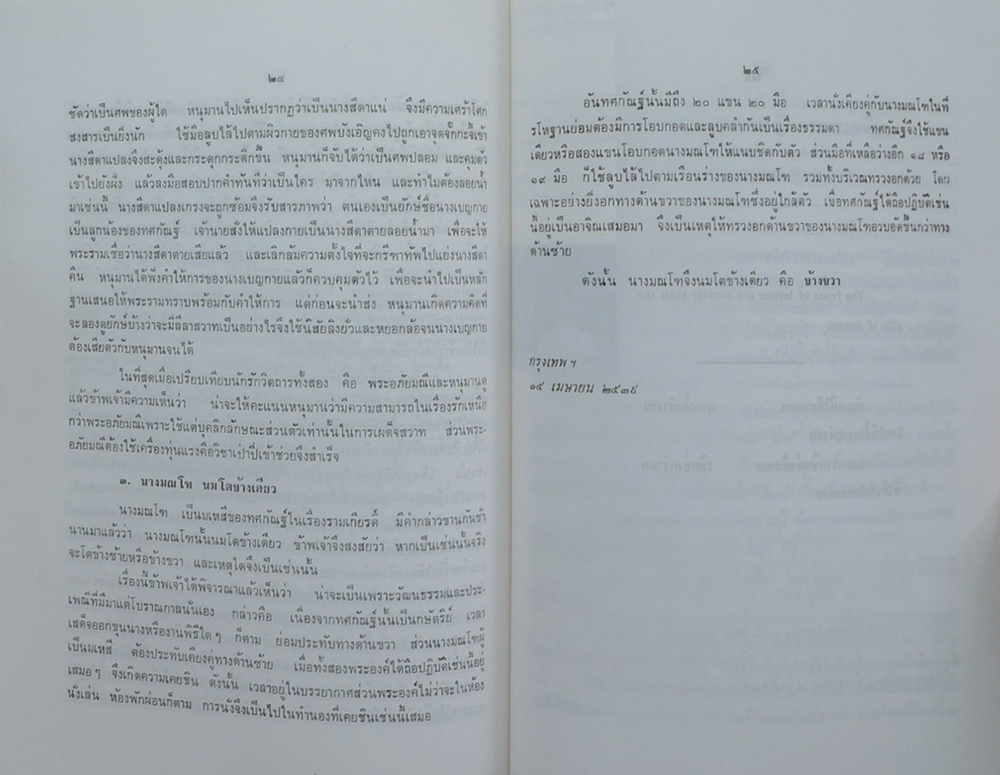 ๒๔
ชัดว่าเป็นศพของผู้ใด หนุมานไปเห็นปรากฏว่าเป็นนางสีดาแน่ จึงมีความเศร้าโศก
สงสารเป็นยิ่งนัก ใช้มือลูบไล้ไปตามผิวกายของศพบังเอิญคงไปถูกเอาจุดจั๊กกะจี้เข้า
นางสีดาแปลงจึงสะดุ้งและกระดุกกระดิกขึ้น หนุมานก็จับได้ว่าเป็นศพปลอม และคุมตัว
เข้าไปยังฝั่ง แล้วลงมือสอบปากคำทันทีว่าเป็นใคร มาจากไหน และทำไมต้องลอยน้ำ
มาเช่นนี้ นางสีดาแปลงเกรงจะถูกซ้อมจึงรับสารภาพว่า ตนเองเป็นยักษ์ชื่อนางเบญกาย
เป็นลูกน้องของทศกัณฐ์ เจ้านายสั่งให้แปลงกายเป็นนางสีดาตายลอยน้ำมา เพื่อจะให้
พระรามเชื่อว่านางสีดาตายเสียแล้ว และเลิกล้มความตั้งใจที่จะกรีฑาทัพไปแย่งนางสีดา
คืน หนุมานได้ฟังคำให้การของนางเบญกายแล้วก็ควบคุมตัวไว้ เพื่อจะนำไปเป็นหลัก
ฐานเสนอให้พระรามทราบพร้อมกับคำให้การ แต่ก่อนจะนำส่ง หนุมานเกิดความคิดที่
จะลองดูยักษ์บ้างว่าจะมีลีลาสวาทเป็นอย่างไรจึงใช้นิสัยลิงยั่วและหยอกล้อจนนางเบญกาย
ต้องเสียตัวกับหนุมานจนได้
ในที่สุดเมื่อเปรียบเทียบนักรักวิตถารทั้งสอง คือ พระอภัยมณีและหนุมานดู
แล้วข้าพเจ้ามีความเห็นว่า น่าจะให้คะแนนหนุมานว่ามีความสามารถในเรื่องรักเหนือ
กว่าพระอภัยมณีเพราะใช้แต่บุคลิกลักษณะส่วนตัวเท่านั้นในการเผด็จสวาท ส่วนพระ-
อภัยมณีต้องใช้เครื่องทุ่นแรงคือวิชาเป่าปี่เข้าช่วยจึงสำเร็จ
๓. นางมณโฑ นมโตข้างเดียว
นางมณโฑ เป็นมเหสีของทศกัณฐ์ในเรื่องรามเกียรติ์ มีคำกล่าวขานกันช้า
นานมาแล้วว่า นางมณโฑนั้นนมโตข้างเดียว ข้าพเจ้าจึงสงสัยว่า หากเป็นเช่นนั้นจริง
จะโตข้างซ้ายหรือข้างขวา และเหตุใดจึงเป็นเช่นนั้น
เรื่องนี้ข้าพเจ้าได้พิจารณาแล้วเห็นว่า น่าจะเป็นเพราะวัฒนธรรมและประ-
เพณีที่มีมาแต่โบราณกาลนั่นเอง กล่าวคือ เนื่องจากทศกัณฐ์นั้นเป็นกษัตริย์ เวลา
เสด็จออกขุนนางหรืองานพิธีใดๆ ก็ตาม ย่อมประทับทางด้านขวา ส่วนนางมณโฑผู้
เป็นมเหสี ต้องประทับเคียงคู่ทางด้านซ้าย เมื่อทั้งสองพระองค์ได้ถือปฏิบัติเช่นนี้อยู่
เสมอๆ จึงเกิดความเคยชิน ดังนั้น เวลาอยู่ในบรรยากาศส่วนพระองค์ไม่ว่าจะในห้อง
นั่งเล่น ห้องพักผ่อนก็ตาม การนั่งจึงเป็นไปในทำนองที่เคยชินเช่นนี้เสมอ
๒๕
อันทศกัณฐ์นั้นมีถึง ๒๐ แขน ๒๐ มือ เวลานั่งเคียงคู่กับนางมณโฑในที่
รโหฐานย่อมต้องมีการโอบกอดและลูบคลำกันเป็นเรื่องธรรมดา ทศกัณฐ์จึงใช้แขน
เดียวหรือสองแขนโอบกอดนางมณโฑให้แนบชิดกับตัว ส่วนมือที่เหลือว่างอีก ๑๘ หรือ
๑๙ มือ ก็ใช้ลูบไล้ไปตามเรือนร่างของนางมณโฑ รวมทั้งบริเวณทรวงอกด้วย โดย
เฉพาะอย่างยิ่งอกทางด้านขวาของนางมณโฑซึ่งอยู่ใกล้ตัว เมื่อทศกัณฐ์ได้ถือปฏิบัติเช่น
นี้อยู่เป็นอาจิณเสมอมา จึงเป็นเหตุให้ทรวงอกด้านขวาของนางมณโฑอวบอัดขึ้นกว่าทาง
ด้านซ้าย
ดังนั้น นางมณโฑจึงนมโตข้างเดียว คือ ข้างขวา
กรุงเทพ ฯ
๑๕ เมษายน ๒๕๓๙